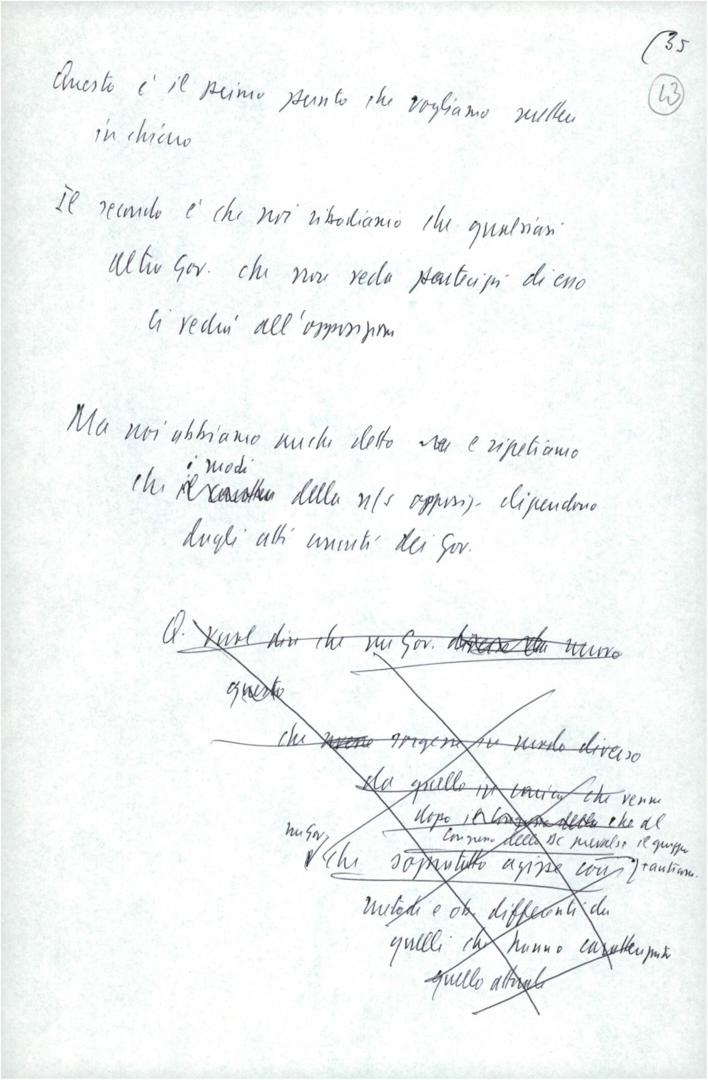 (35
43
Questo è il primo punto che vogliamo mettere
in chiaro
Il secondo è che noi ribadiamo che qualsiasi
altro Gov. che non veda partecipi di esso
ci vedrà all'opposizione
Ma noi abbiamo anche detto e ripetiamo
i modi
che della n/s opposiz. dipendono
dagli atti concreti dei Gov.
Q. vuol dire che un Gov. diverso da nuovo
questo
che sorgesse in modo diverso
da quello in cui che venne
dopo il che al
Congresso della DC prevalse il gruppo
un Gov.
che soprattutto agisse con + anticom.
metodi e ob. differenti da
quelli che hanno caratterizzato
quello attuale